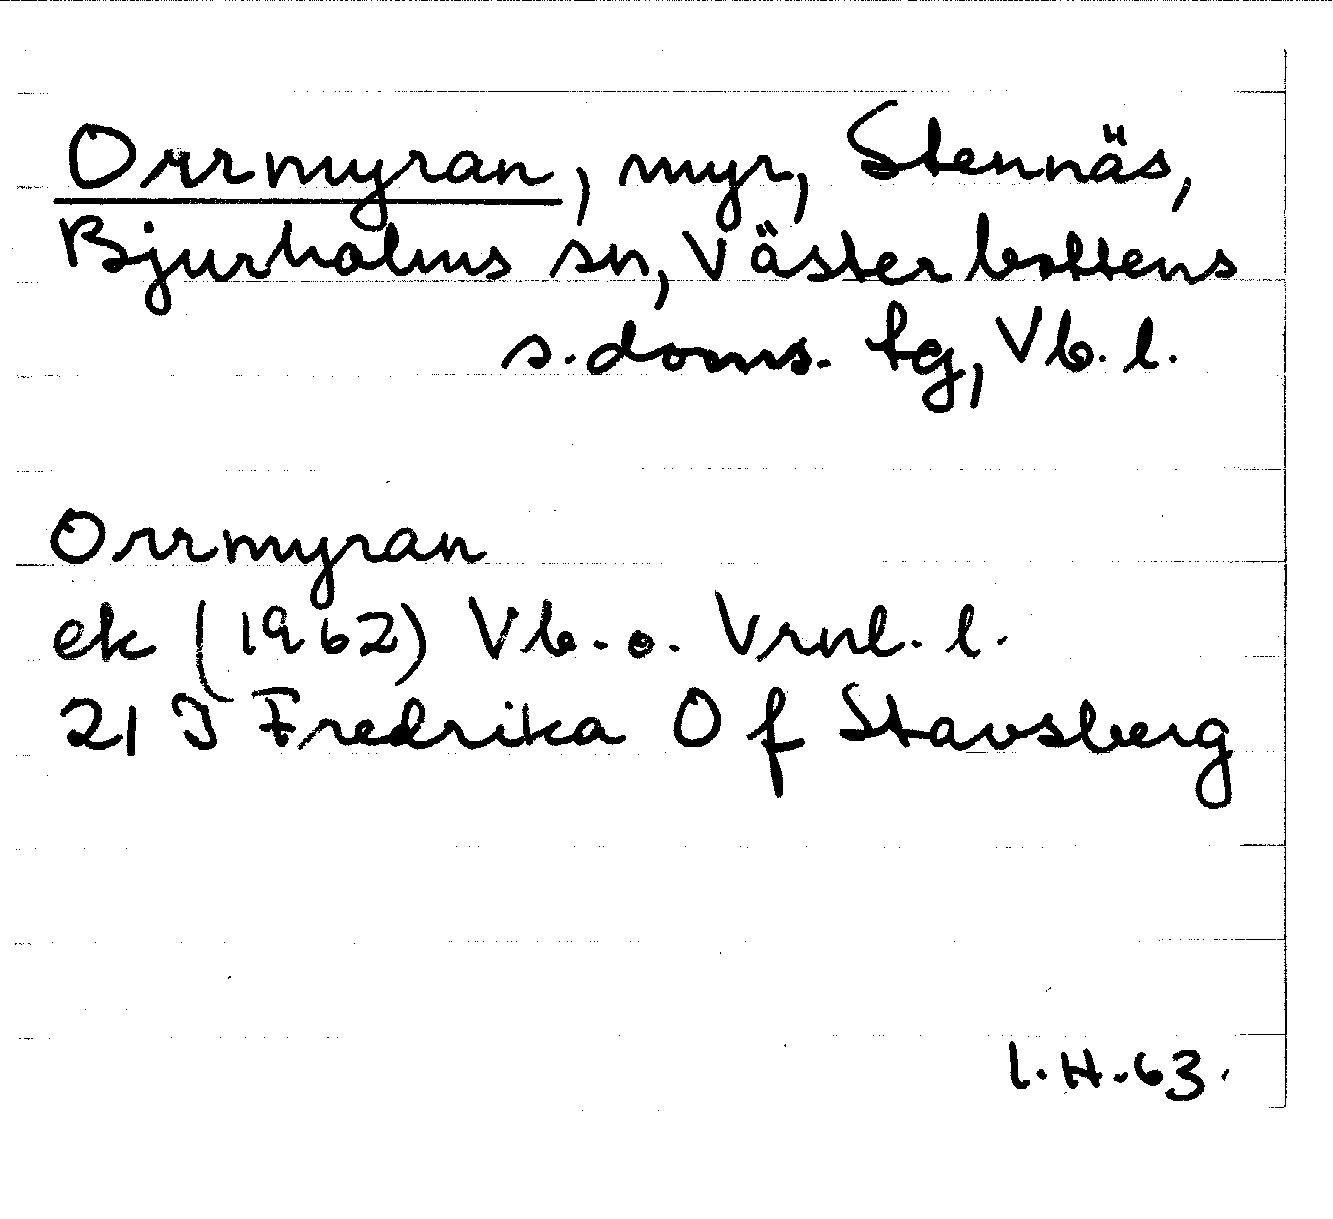 Orrmyran, myr, Stennäs,
Bjurholms sn, Västerbottens
s. doms. tg, Vb. l.
Orrmyran
ek (1962) Vb. o. Vrnl. l.
21 J Fredrika O f Stavsberg
l. H. 63.